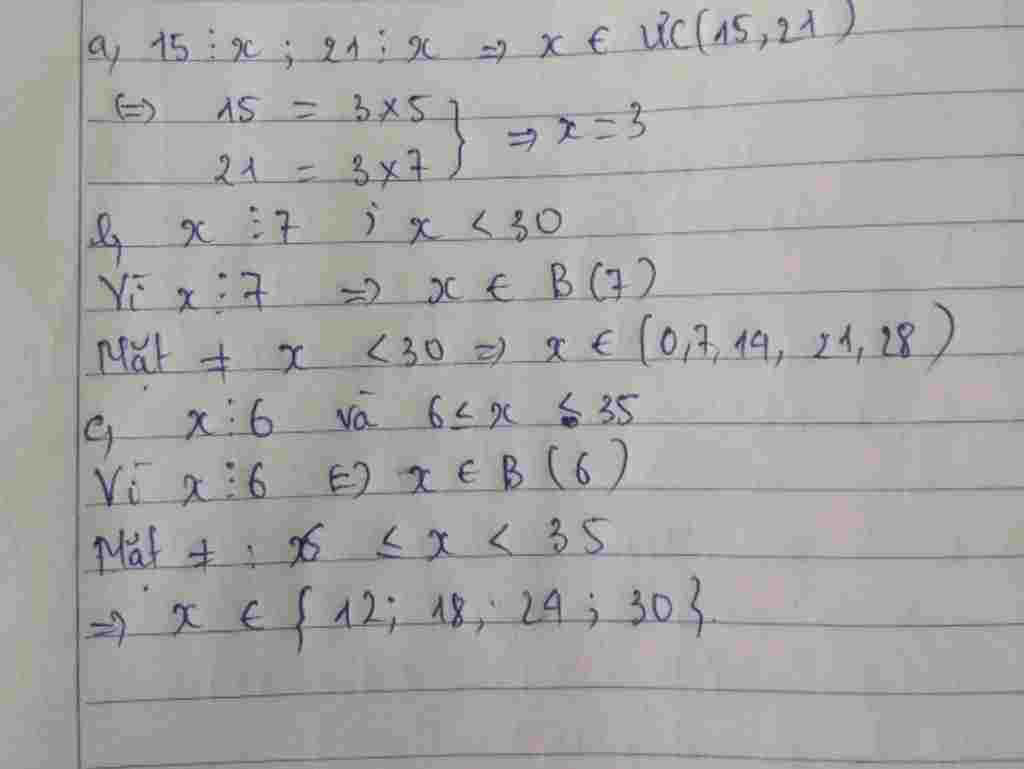 a, 15 ⋮ x ; 21 ⋮ x => x ∈ ƯC(15, 21)
(=) 15 = 3 x 5
21 = 3 x 7 } => x = 3
b, x ⋮ 7 ; x < 30
Vì x ⋮ 7 => x ∈ B (7)
Mặt ≠ x < 30 => x ∈ (0, 7, 14, 21, 28)
c, x ⋮ 6 và 6 ≤ x ≤ 35
Vì x ⋮ 6 => x ∈ B (6)
Mặt ≠ : 6 ≤ x < 35
=> x ∈ { 12 ; 18 ; 24 ; 30 }.